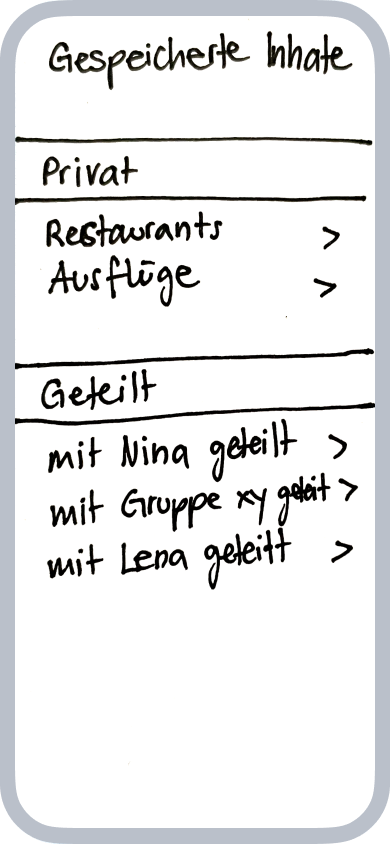 Gespeicherte Inhate
Privat
Restaurants >
Ausflüge >
Geteilt
mit Nina geteilt >
mit Gruppe xy geteit >
mit Lena geteilt >